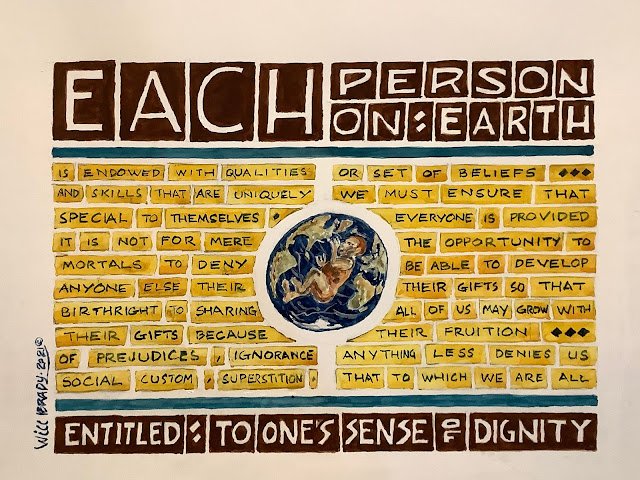 EACH
PERSON
ON : EARTH
IS ENDOWED WITH QUALITIES
AND SKILLS THAT ARE UNIQUELY
SPECIAL TO THEMSELVES •
IT IS NOT FOR MERE
MORTALS TO DENY
ANYONE ELSE THEIR
BIRTHRIGHT TO SHARING
THEIR GIFTS BECAUSE
OF PREJUDICES, IGNORANCE
SOCIAL CUSTOM, SUPERSTITION,
OR SET OF BELIEFS ◆◆◆
WE MUST ENSURE THAT
EVERYONE IS PROVIDED
THE OPPORTUNITY TO
BE ABLE TO DEVELOP
THEIR GIFTS SO THAT
ALL OF US MAY GROW WITH
THEIR FRUITION ◆◆◆
ANYTHING LESS DENIES US
THAT TO WHICH WE ARE ALL
ENTITLED : TO ONE'S SENSE OF DIGNITY
WILL BRADY · 2021 ©